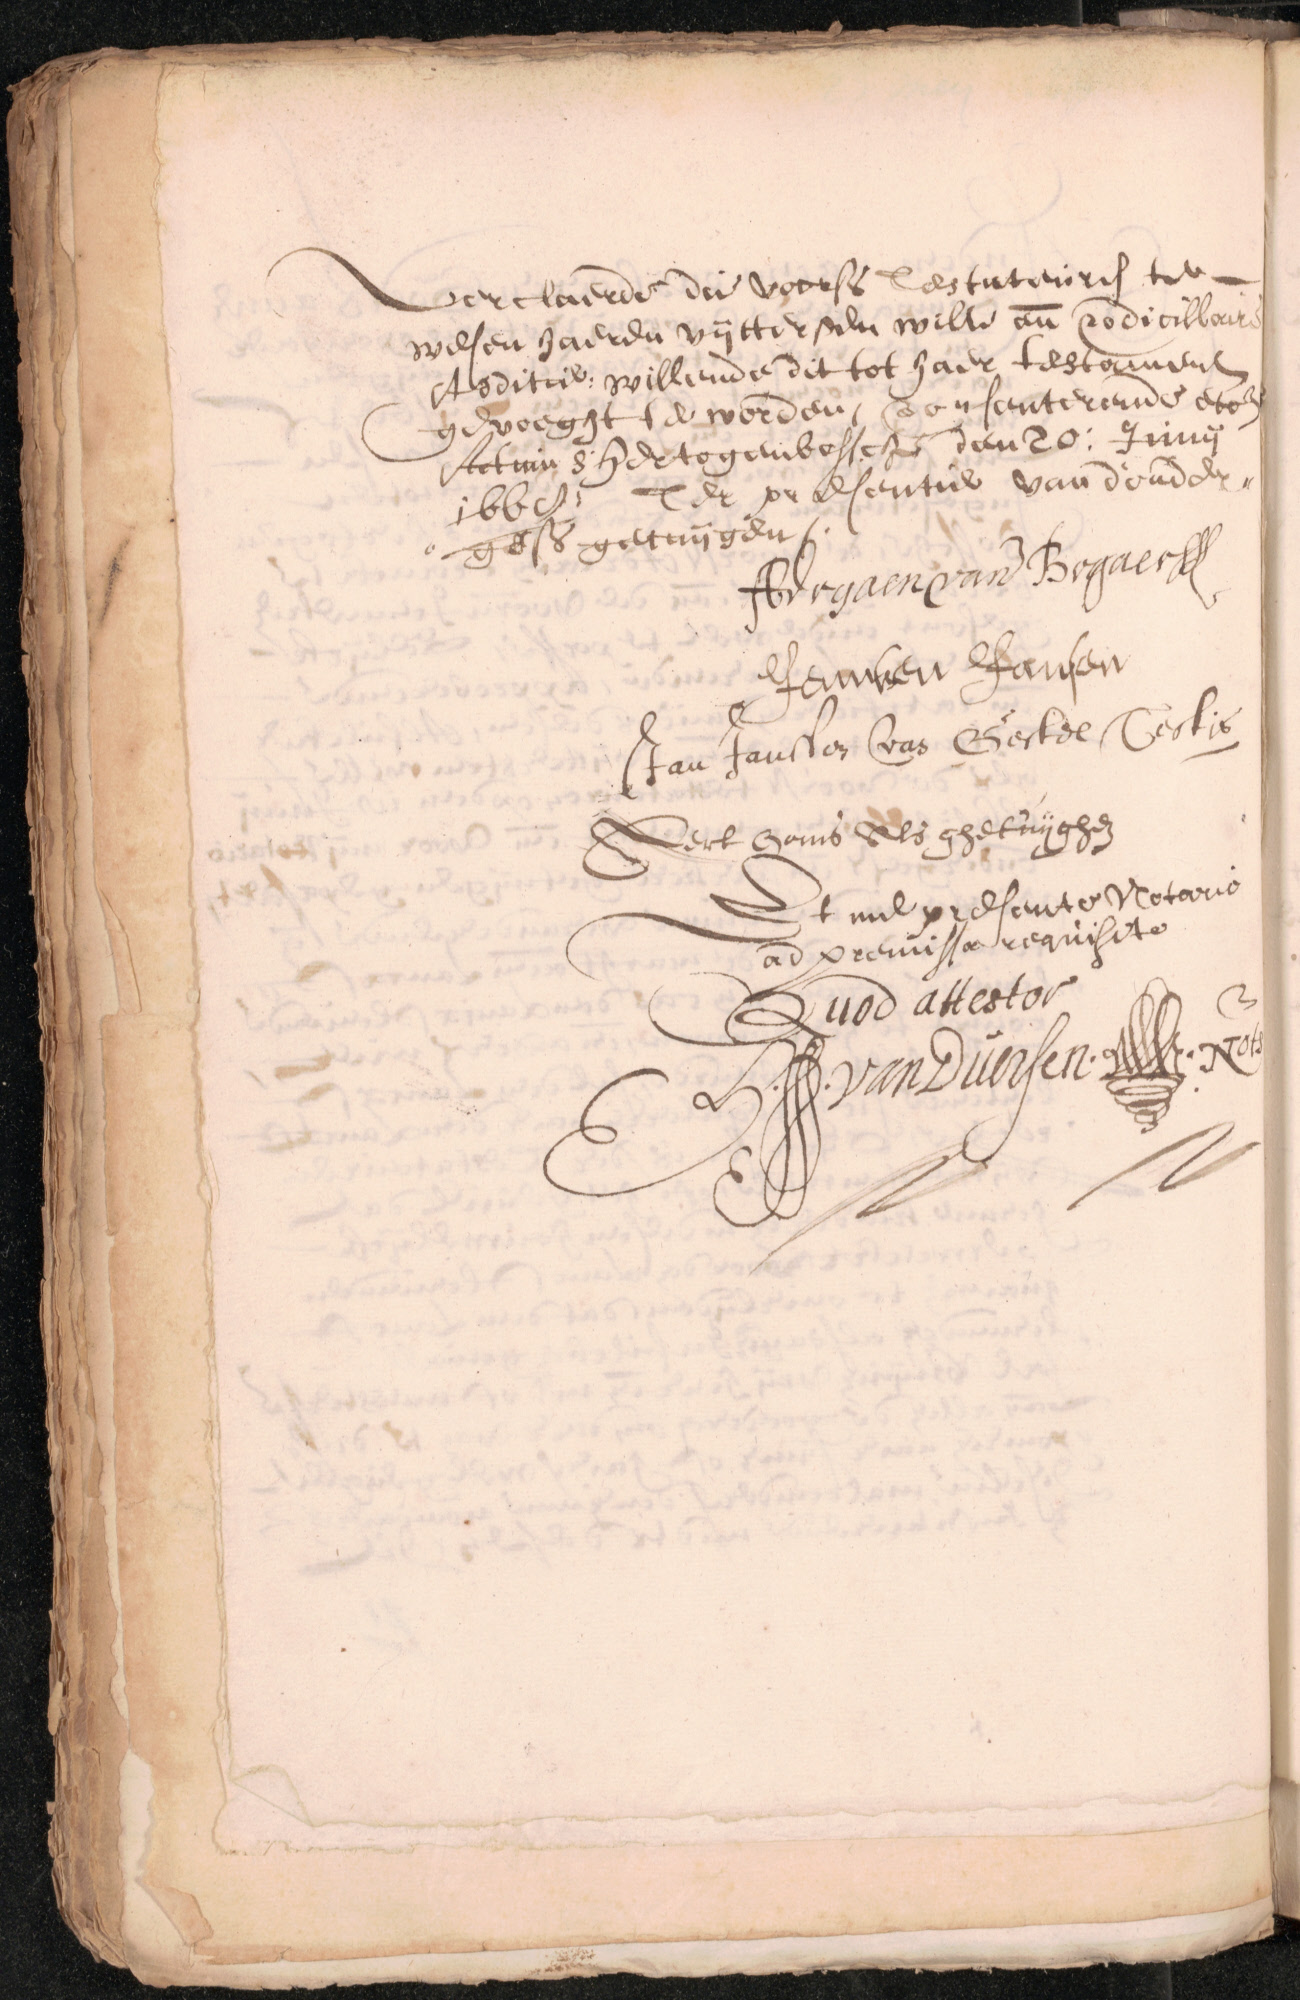 Verclaerde die voorss Testateurs te
wesen haeren uijttersten wille en Codicillaire
Additie: willende dit tot haer testament
gevoeght te worden, Consenterende etc.
Actum s'Hertogenbossche den 20: Junij
Ter presentie van d'onder
gess getuijgen /.
van Bogaerts
Jansen
Jan Janssen van Testis
Aert Goms Als ghetuijghe
Et me presente Notario
ad premissa requisito
Quod attestor
van Duersen. Nots